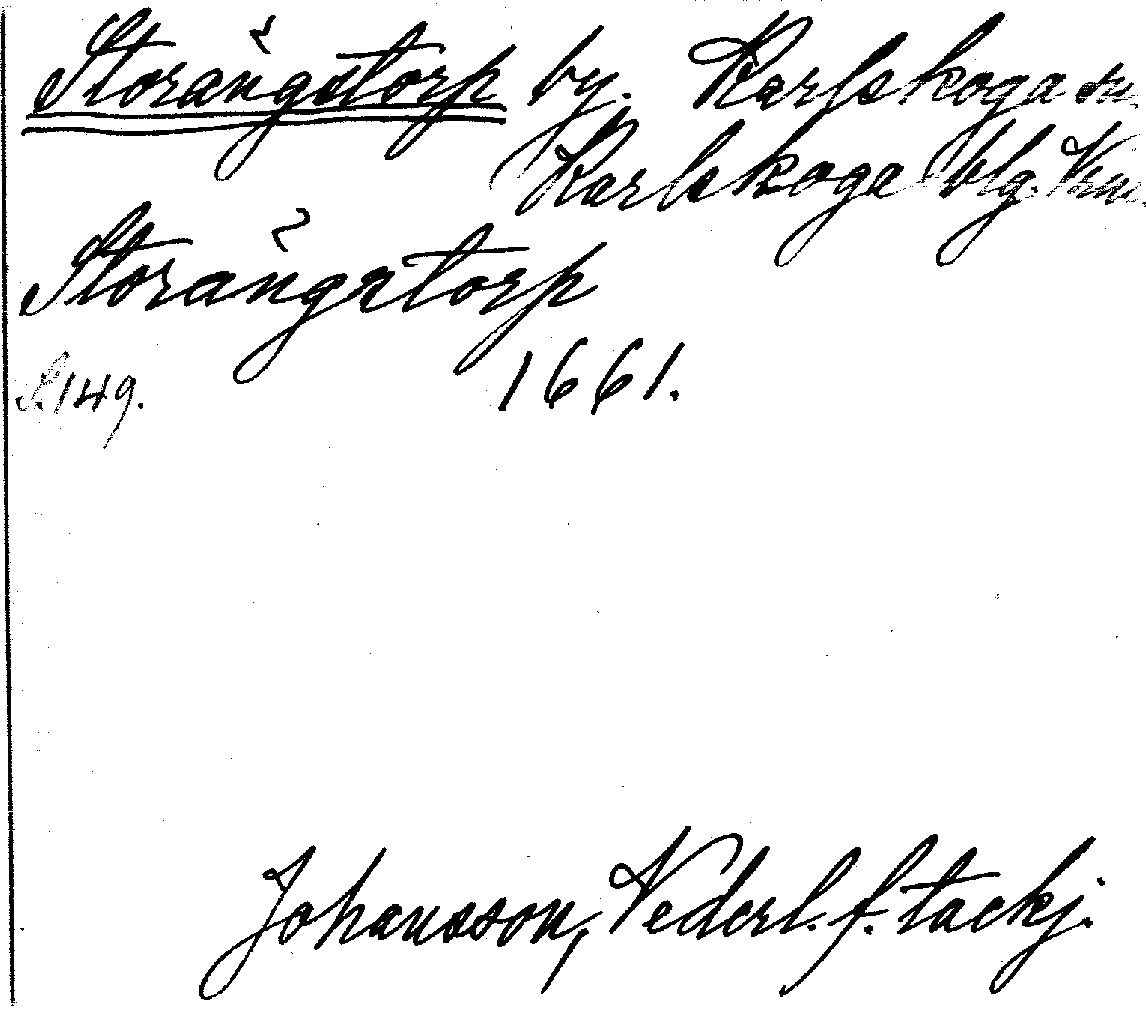 Storängstorp by. Karlskoga sn
Karlskoga blg. Vrml.
Storängstorp
S. 149. 1661.
Johansson, Nederl. f. tackj.